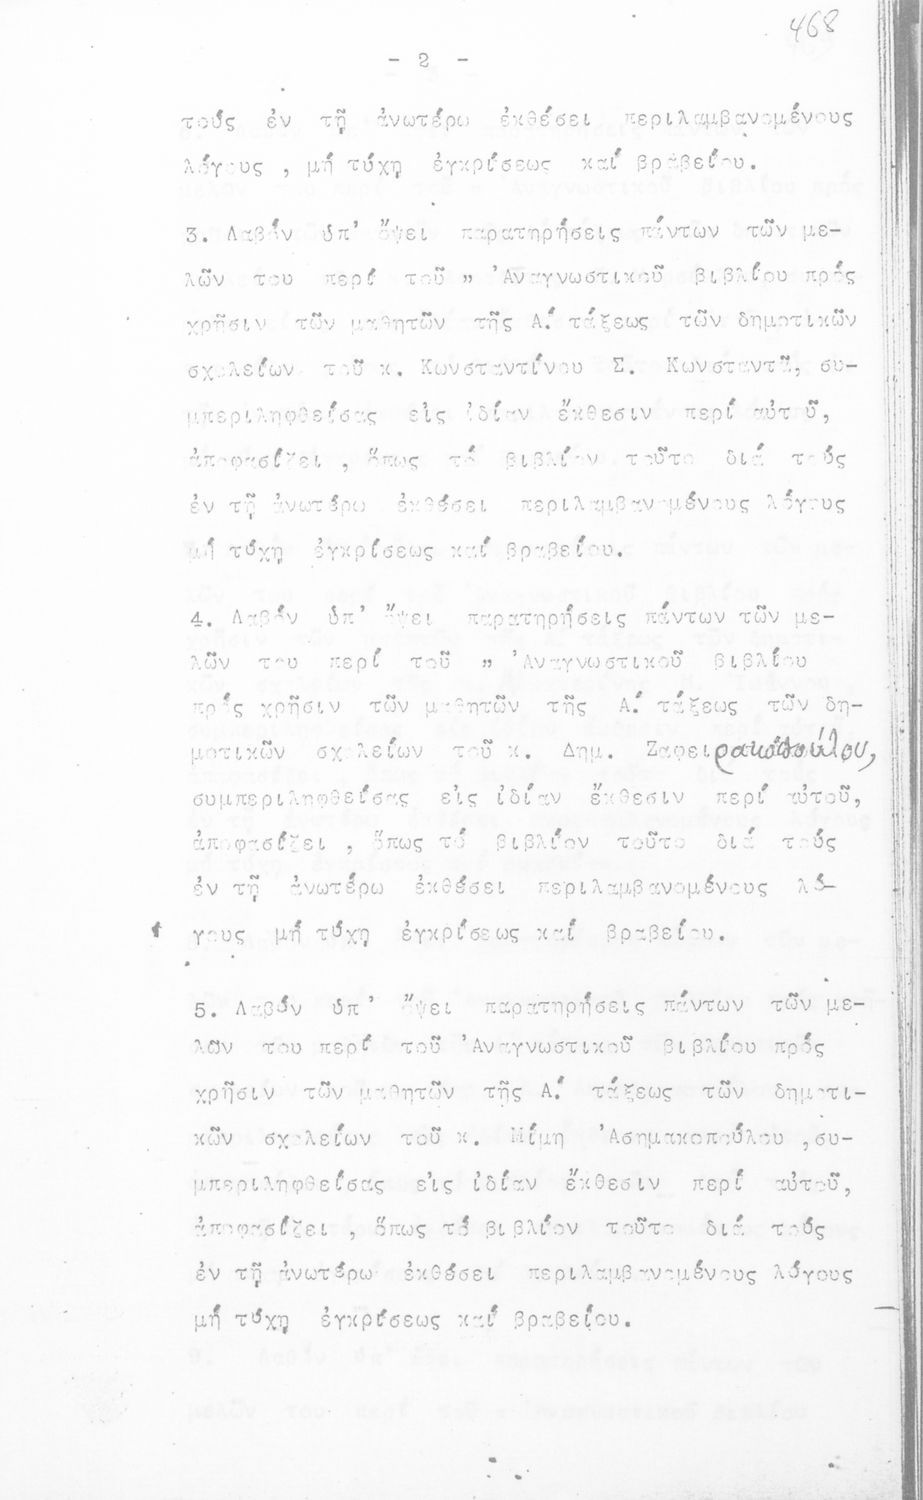 468
- 2 -
τούς ἐν τῇ ἀνωτέρω ἐκθέσει περιλαμβανομένους
λόγους , μή τύχῃ ἐγκρίσεως καί βραβείου.
3. Λαβόν ὑπ' ὄψει παρατηρήσεις πάντων τῶν με-
λῶν του περί τοῦ " Ἀναγνωστικοῦ βιβλίου πρός
χρῆσιν τῶν μαθητῶν τῆς Α΄. τάξεως τῶν δημοτικῶν
σχολείων τοῦ κ. Κωνσταντίνου Σ. Κωνσταντᾶ, συ-
μπεριληφθείσας εἰς ἰδίαν ἔκθεσιν περί αὐτοῦ,
ἀποφασίζει , ὅπως τό βιβλίον τοῦτο διά τούς
ἐν τῇ ἀνωτέρω ἐκθέσει περιλαμβανομένους λόγους
μή τύχῃ ἐγκρίσεως καί βραβείου.
4. Λαβόν ὑπ' ὄψει παρατηρήσεις πάντων τῶν με-
λῶν του περί τοῦ " Ἀναγνωστικοῦ βιβλίου
πρός χρῆσιν τῶν μαθητῶν τῆς Α΄. τάξεως τῶν δη-
μοτικῶν σχολείων τοῦ κ. Δημ. Ζαφειρακοπούλου,
συμπεριληφθείσας εἰς ἰδίαν ἔκθεσιν περί αὐτοῦ,
ἀποφασίζει , ὅπως τό βιβλίον τοῦτο διά τούς
ἐν τῇ ἀνωτέρω ἐκθέσει περιλαμβανομένους λό-
γους μή τύχῃ ἐγκρίσεως καί βραβείου.
5. Λαβόν ὑπ' ὄψει παρατηρήσεις πάντων τῶν με-
λῶν του περί τοῦ Ἀναγνωστικοῦ βιβλίου πρός
χρῆσιν τῶν μαθητῶν τῆς Α΄. τάξεως τῶν δημοτι-
κῶν σχολείων τοῦ κ. Μίμη Ἀσημακοπούλου ,συ-
μπεριληφθείσας εἰς ἰδίαν ἔκθεσιν περί αὐτοῦ,
ἀποφασίζει , ὅπως τό βιβλίον τοῦτο διά τούς
ἐν τῇ ἀνωτέρω ἐκθέσει περιλαμβανομένους λόγους
μή τύχῃ ἐγκρίσεως καί βραβείου.